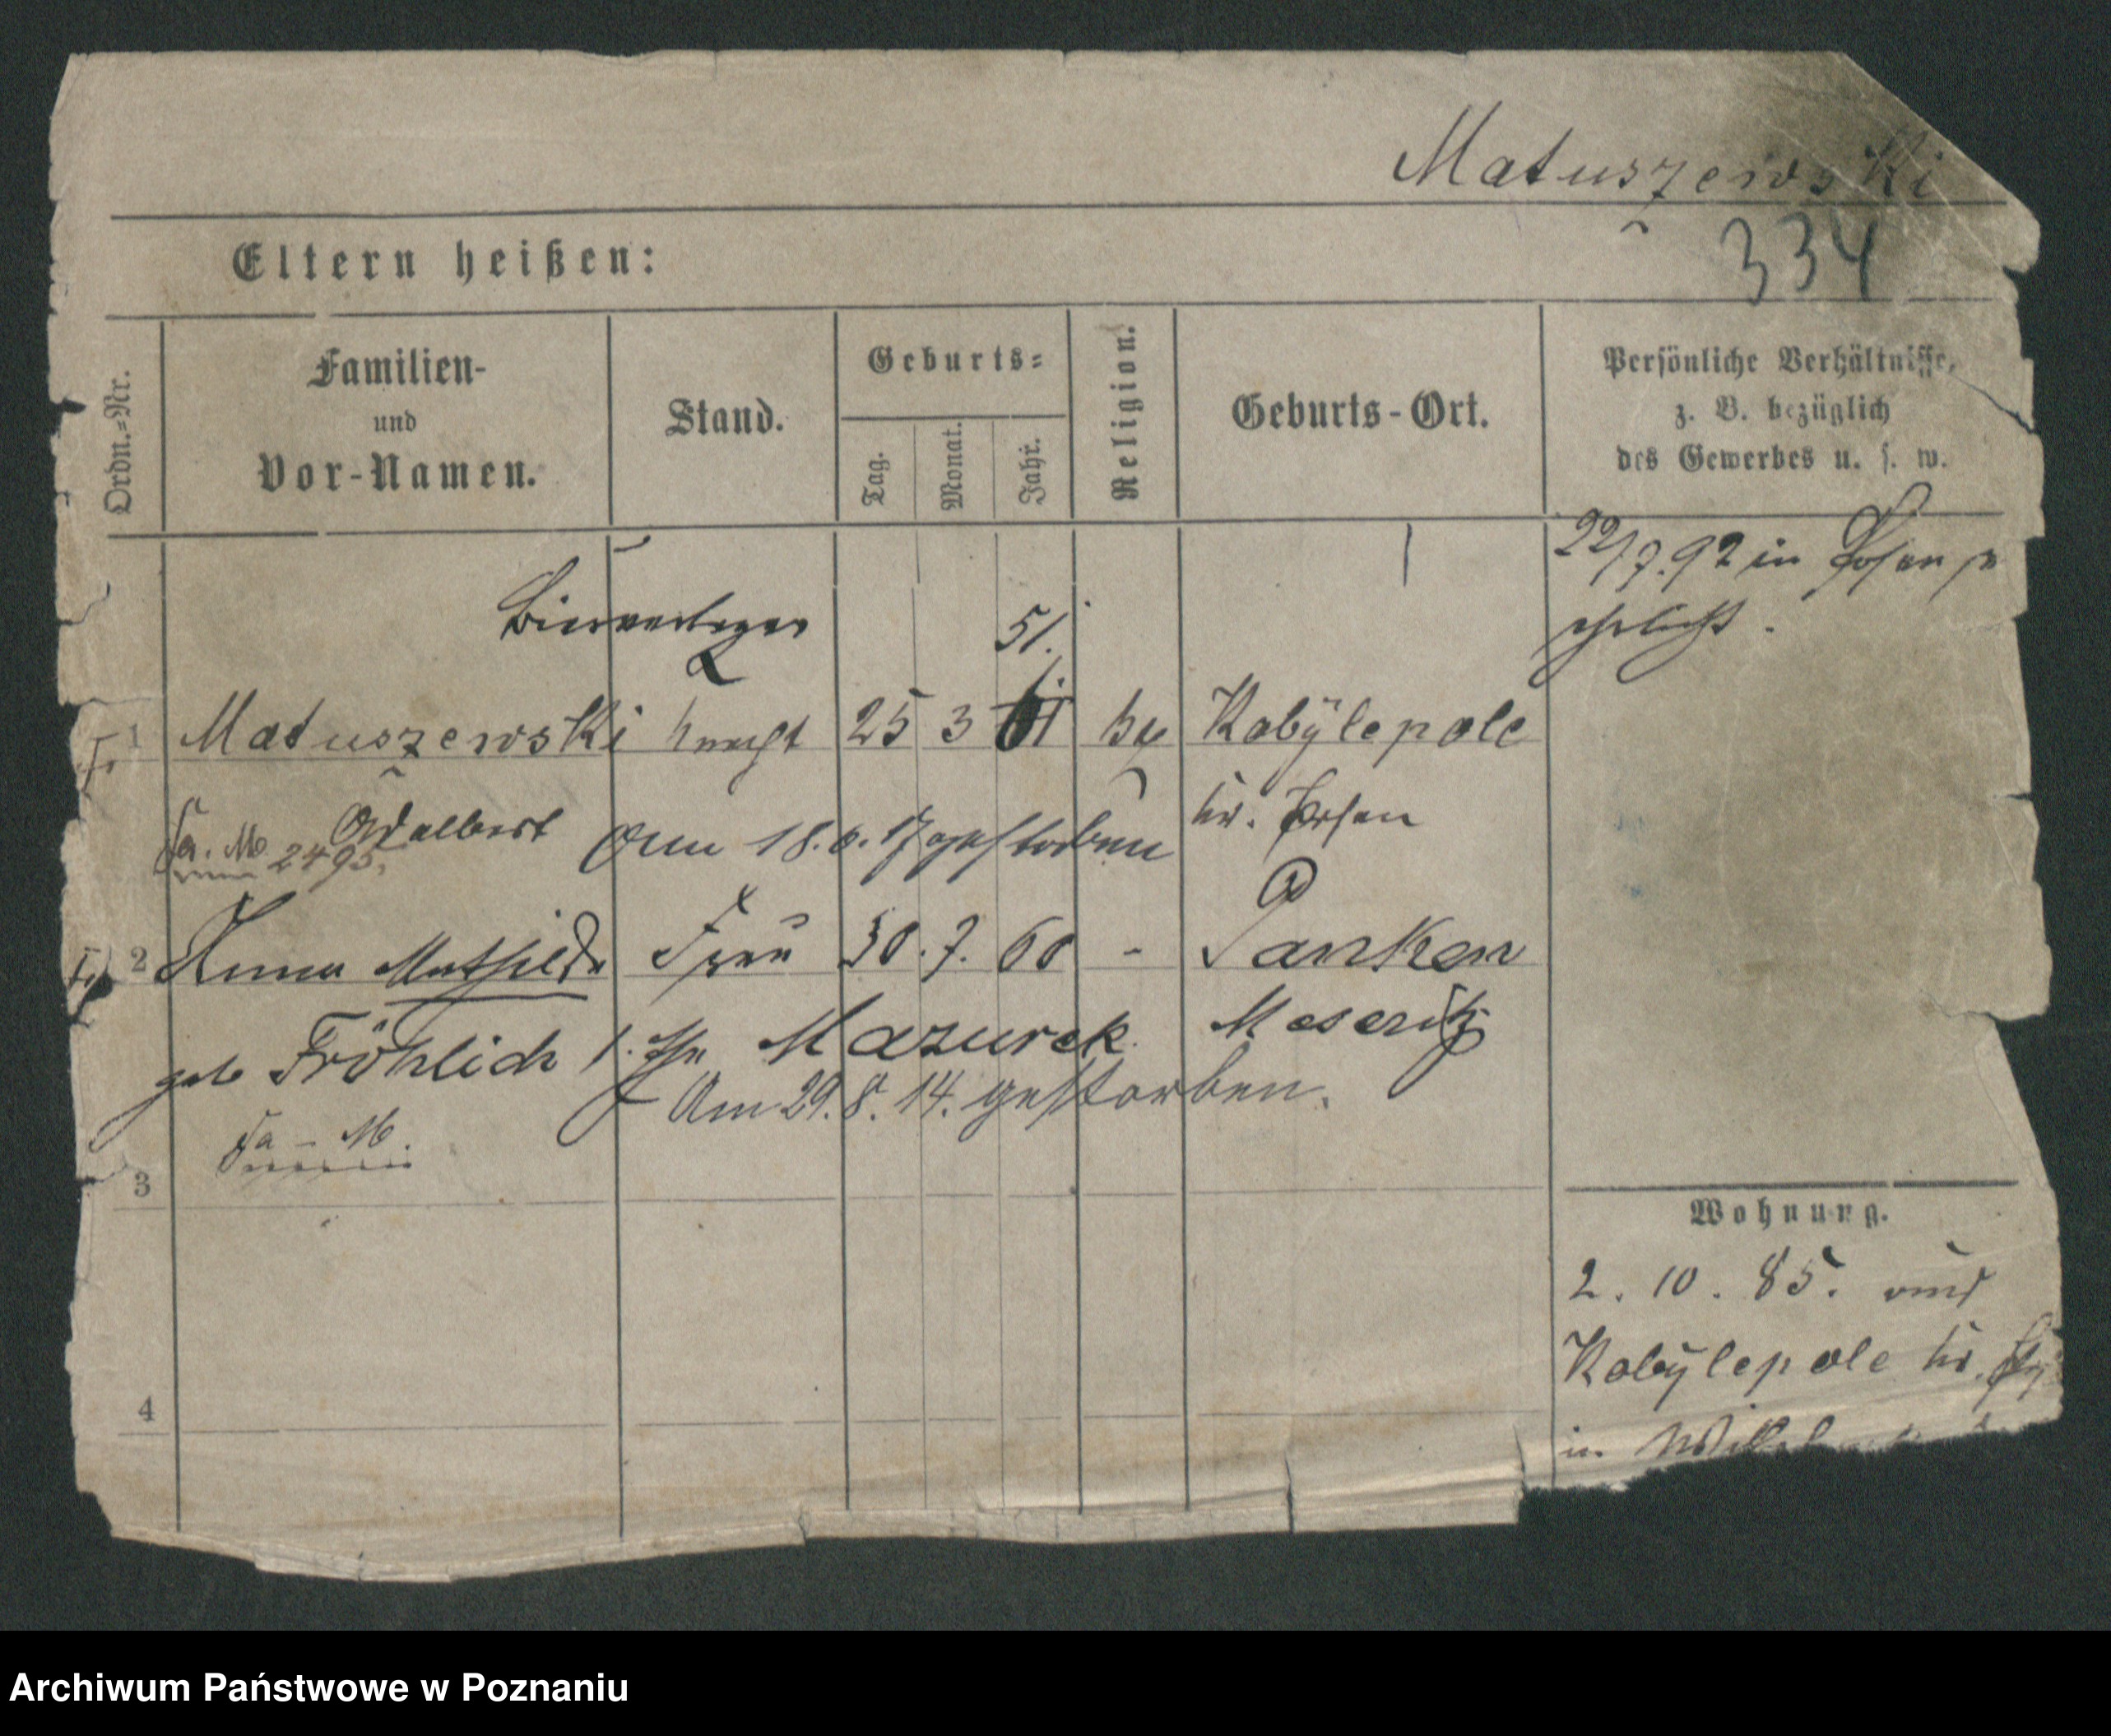 Matuszewski
334
Eltern heißen:
Ordn.=Nr.
Familien-
und
Vor-Namen.
Stand.
Geburts=
Tag.
Monat.
Jahr.
Religion.
Geburts-Ort.
Persönliche Verhältnisse,
z. B. bezüglich
des Gewerbes u. s. w.
22/7.92 in Posen
Bierverleger
51.
1 Matuszewski Knecht 25 3 61 Kobÿlepole
Adalbert
Kr. Posen
Fa. M. 2495.
Am 18.6.17 gestorben
2 Anna Mathilde Frau 30. 7. 60 - Panken
geb Fröhlich 1. Ehe Mazurek. Meseritz
Am 29. 8. 14. gestorben.
Fa - M.
3
4
Wohnung.
2. 10. 85. aus
Kobÿlepole Kr.
in
Archiwum Państwowe w Poznaniu